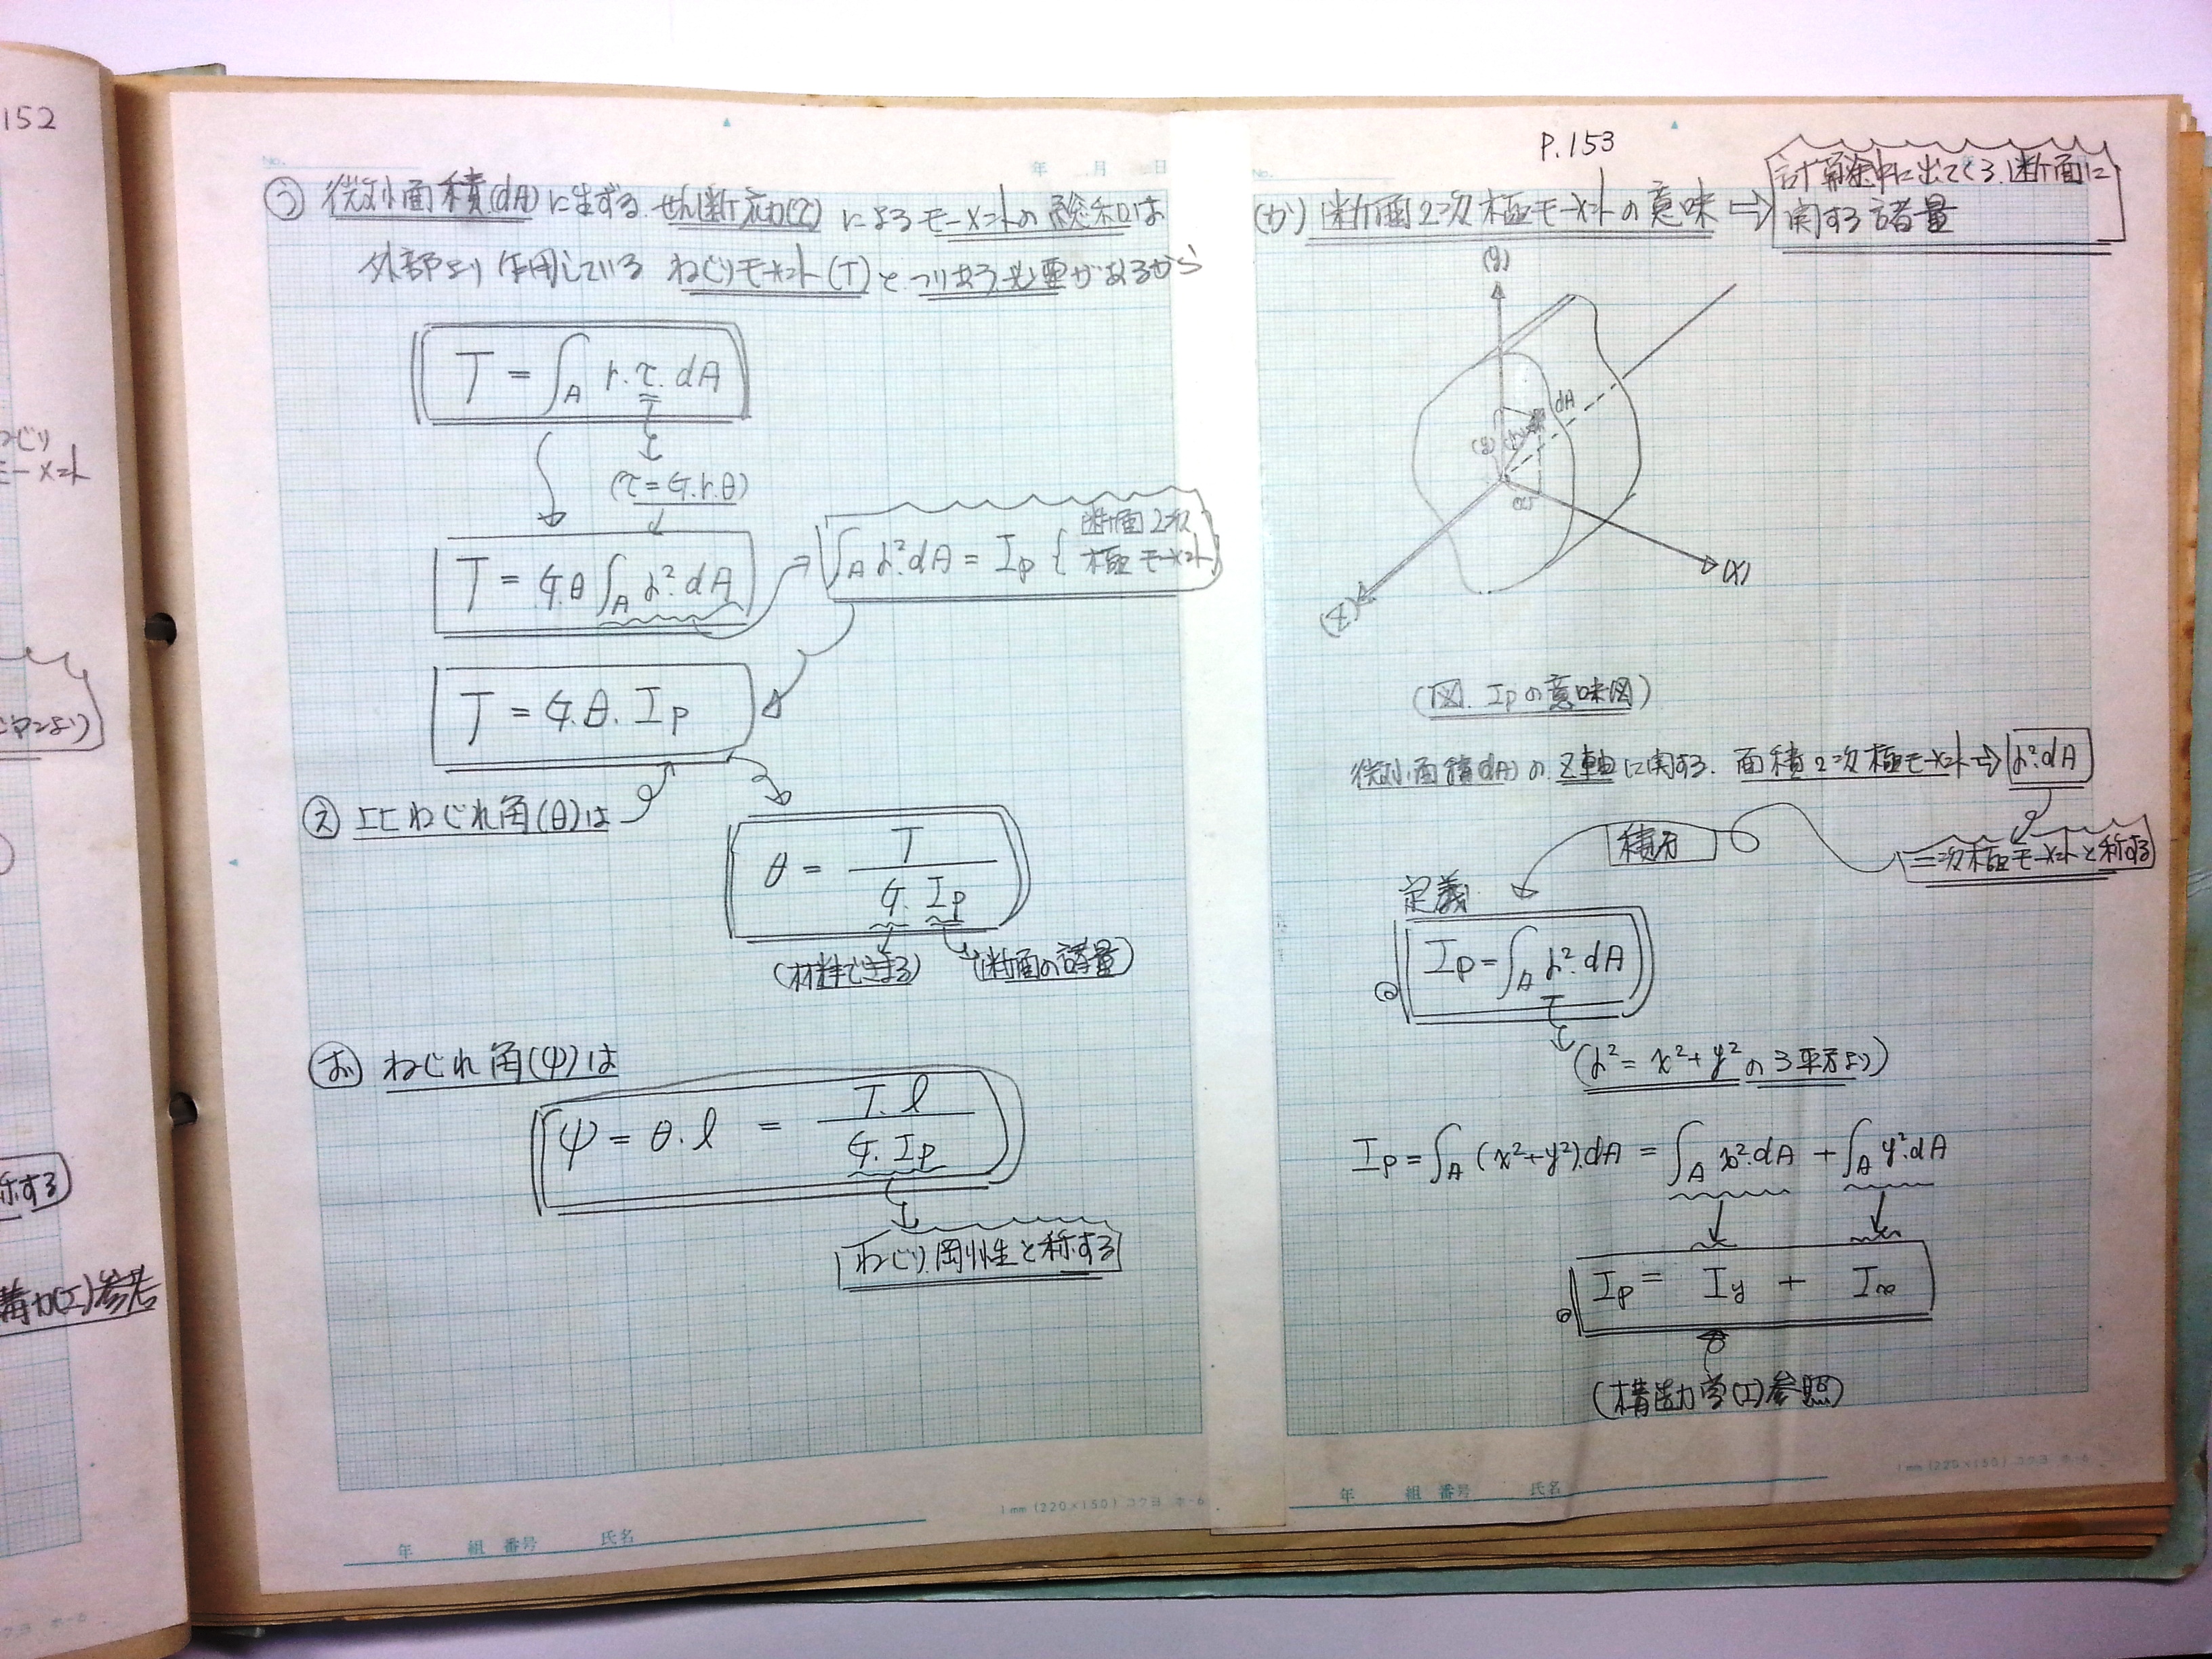 152
ねじり
モーメント
称する
No.
年 月 日
う 微小面積(dA)に生ずる.せん断応力(τ)によるモーメントの総和は
外部より作用している ねじりモーメント(T)と.つりあう必要があるから
T = ∫A r.τ.dA
(τ=G.r.θ)
T = G.θ ∫A r².dA
∫A r².dA = Ip { 断面2次
極モーメント
T = G.θ.Ip
え 比ねじれ角(θ)は
θ = T / G.Ip
(材料できまる)
(断面の諸量)
お ねじれ角(ψ)は
ψ = θ.l = T.l / G.Ip
ねじり剛性と称する
年 組 番号 氏名
1mm (220×150) コクヨ ホ-6
P.153
No.
(か) 断面2次極モーメントの意味 ⇒
計算途中に出てくる.断面に
関する諸量
(y)
dA
(y)
(r)
(x)
(x)
(z)
(図. Ipの意味図)
微小面積(dA)の.z軸に関する.面積2次極モーメント⇒ r².dA
二次極モーメントと称する
積分
定義
Ip=∫A r².dA
(r² = x²+y² の3平方より)
Ip = ∫A (x²+y²).dA = ∫A x².dA + ∫A y².dA
Ip = Iy + Ix
(構造力学(I)参照)
年 組 番号 氏名
1mm (220×150) コクヨ ホ-6